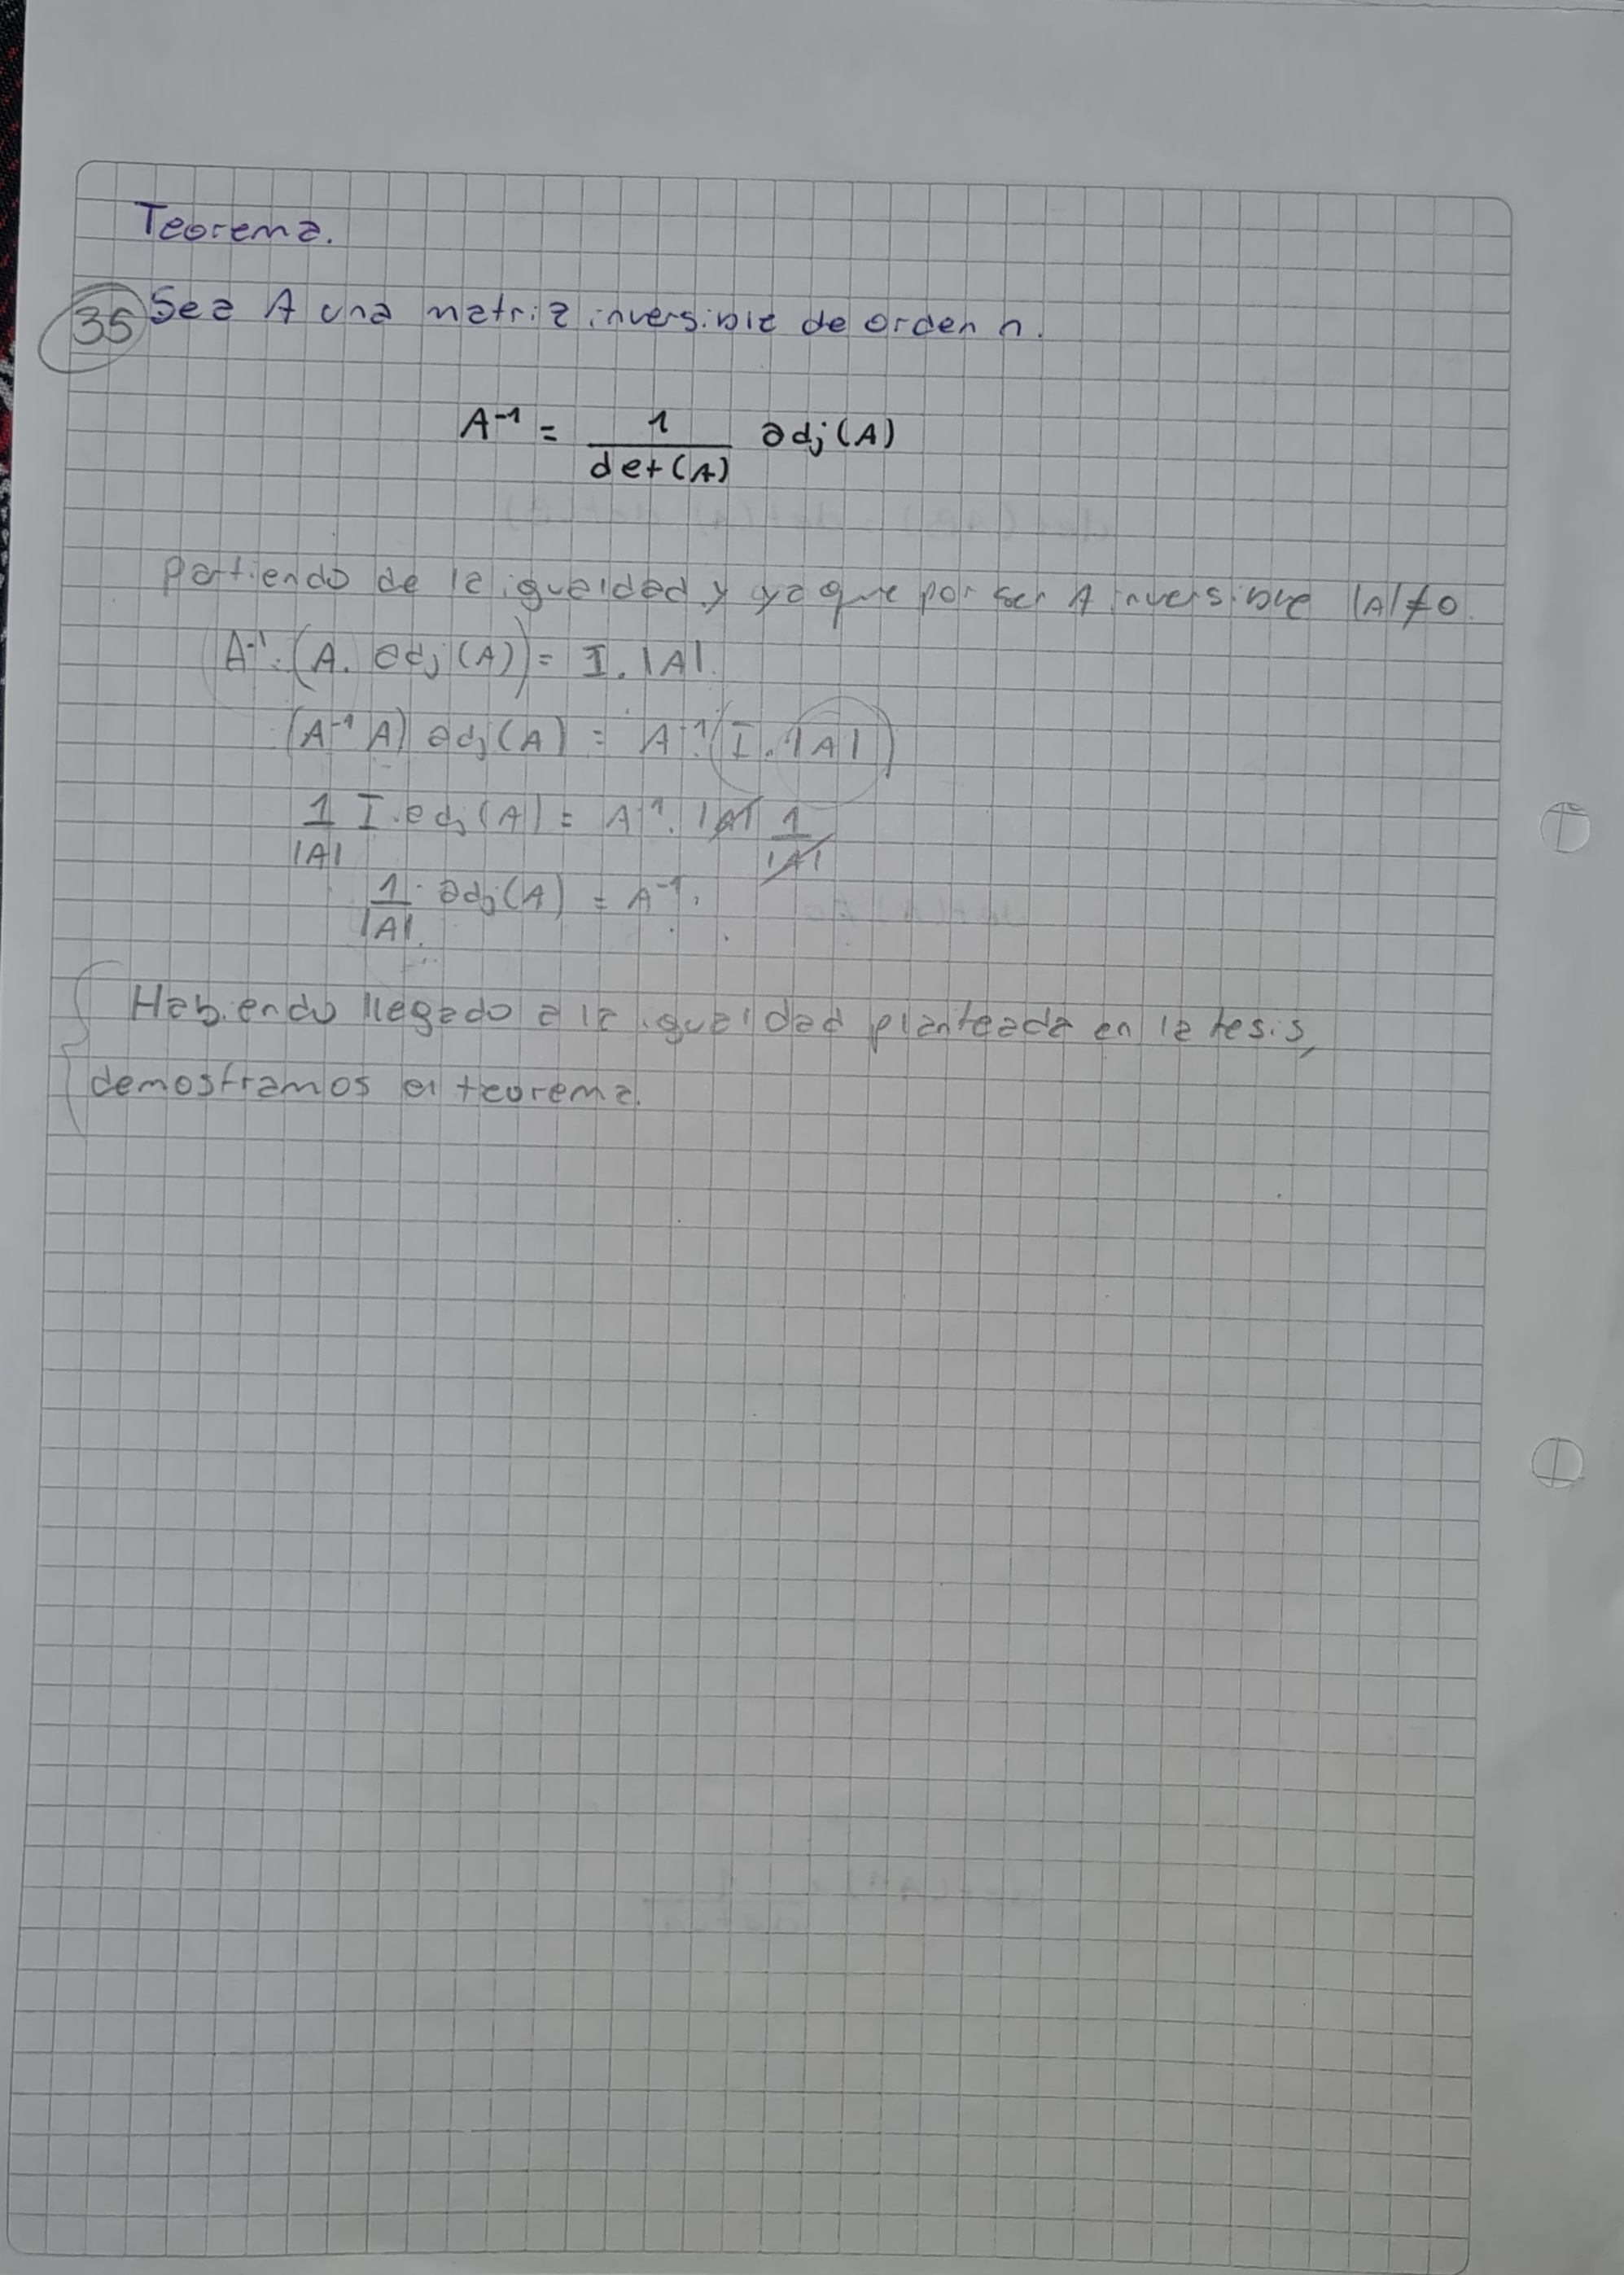 Teorema.
35 Sea A una matriz inversible de orden n.
A⁻¹ = 1/det(A) adj(A)
Partiendo de la igualdad y ya que por ser A inversible |A| ≠ 0.
A⁻¹.(A. adj(A)) = I. |A|.
(A⁻¹ A) adj(A) = A⁻¹.(I. |A|)
1/|A| I. adj(A) = A⁻¹. |A| 1/|A|
1/|A|. adj(A) = A⁻¹.
Habiendo llegado a la igualdad planteada en la tesis,
demostramos el teorema.